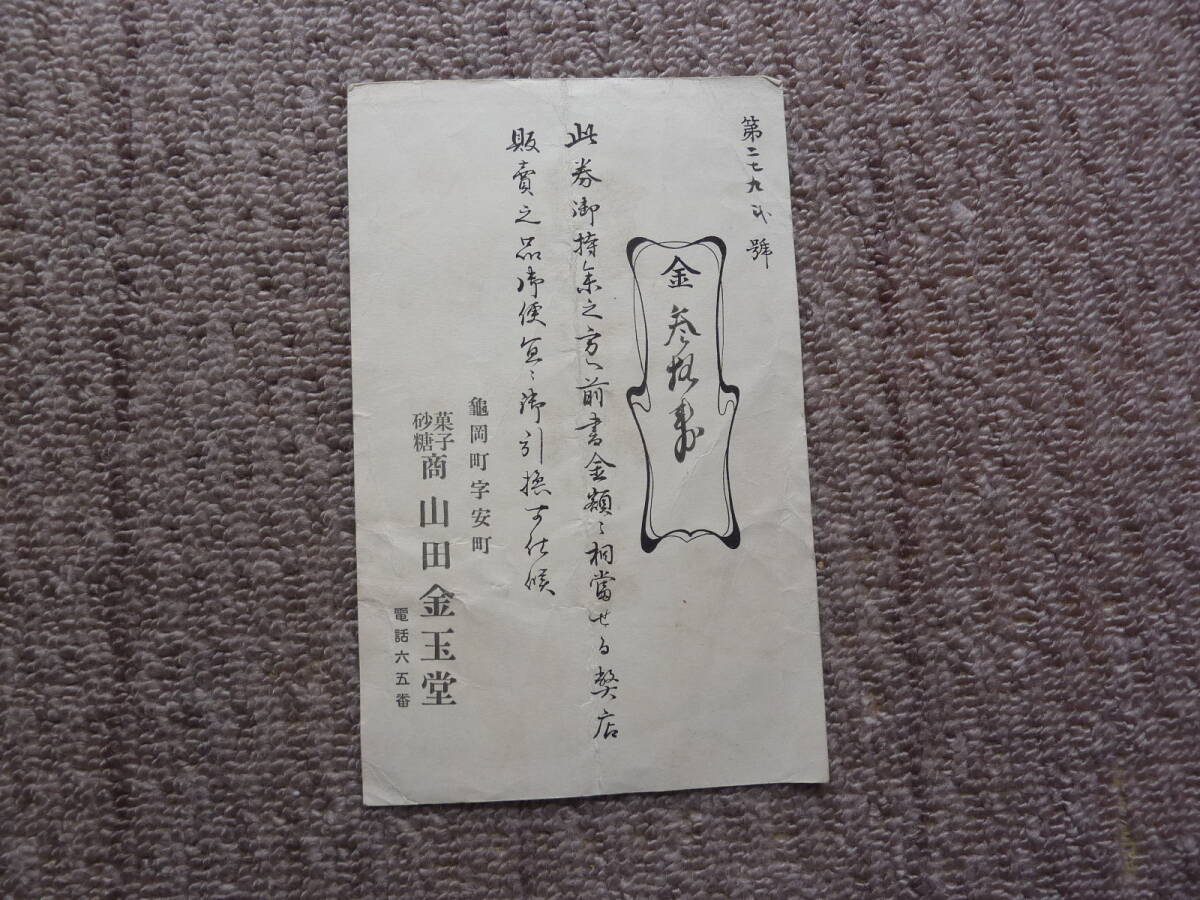 第二七九弐號
金叁拾銭
此券御持参之方へ前書金額ニ相當せる弊店
販賣之品御便宜ニ御引換可仕候
龜岡町字安町
菓子
砂糖
商 山田金玉堂
電話六五番